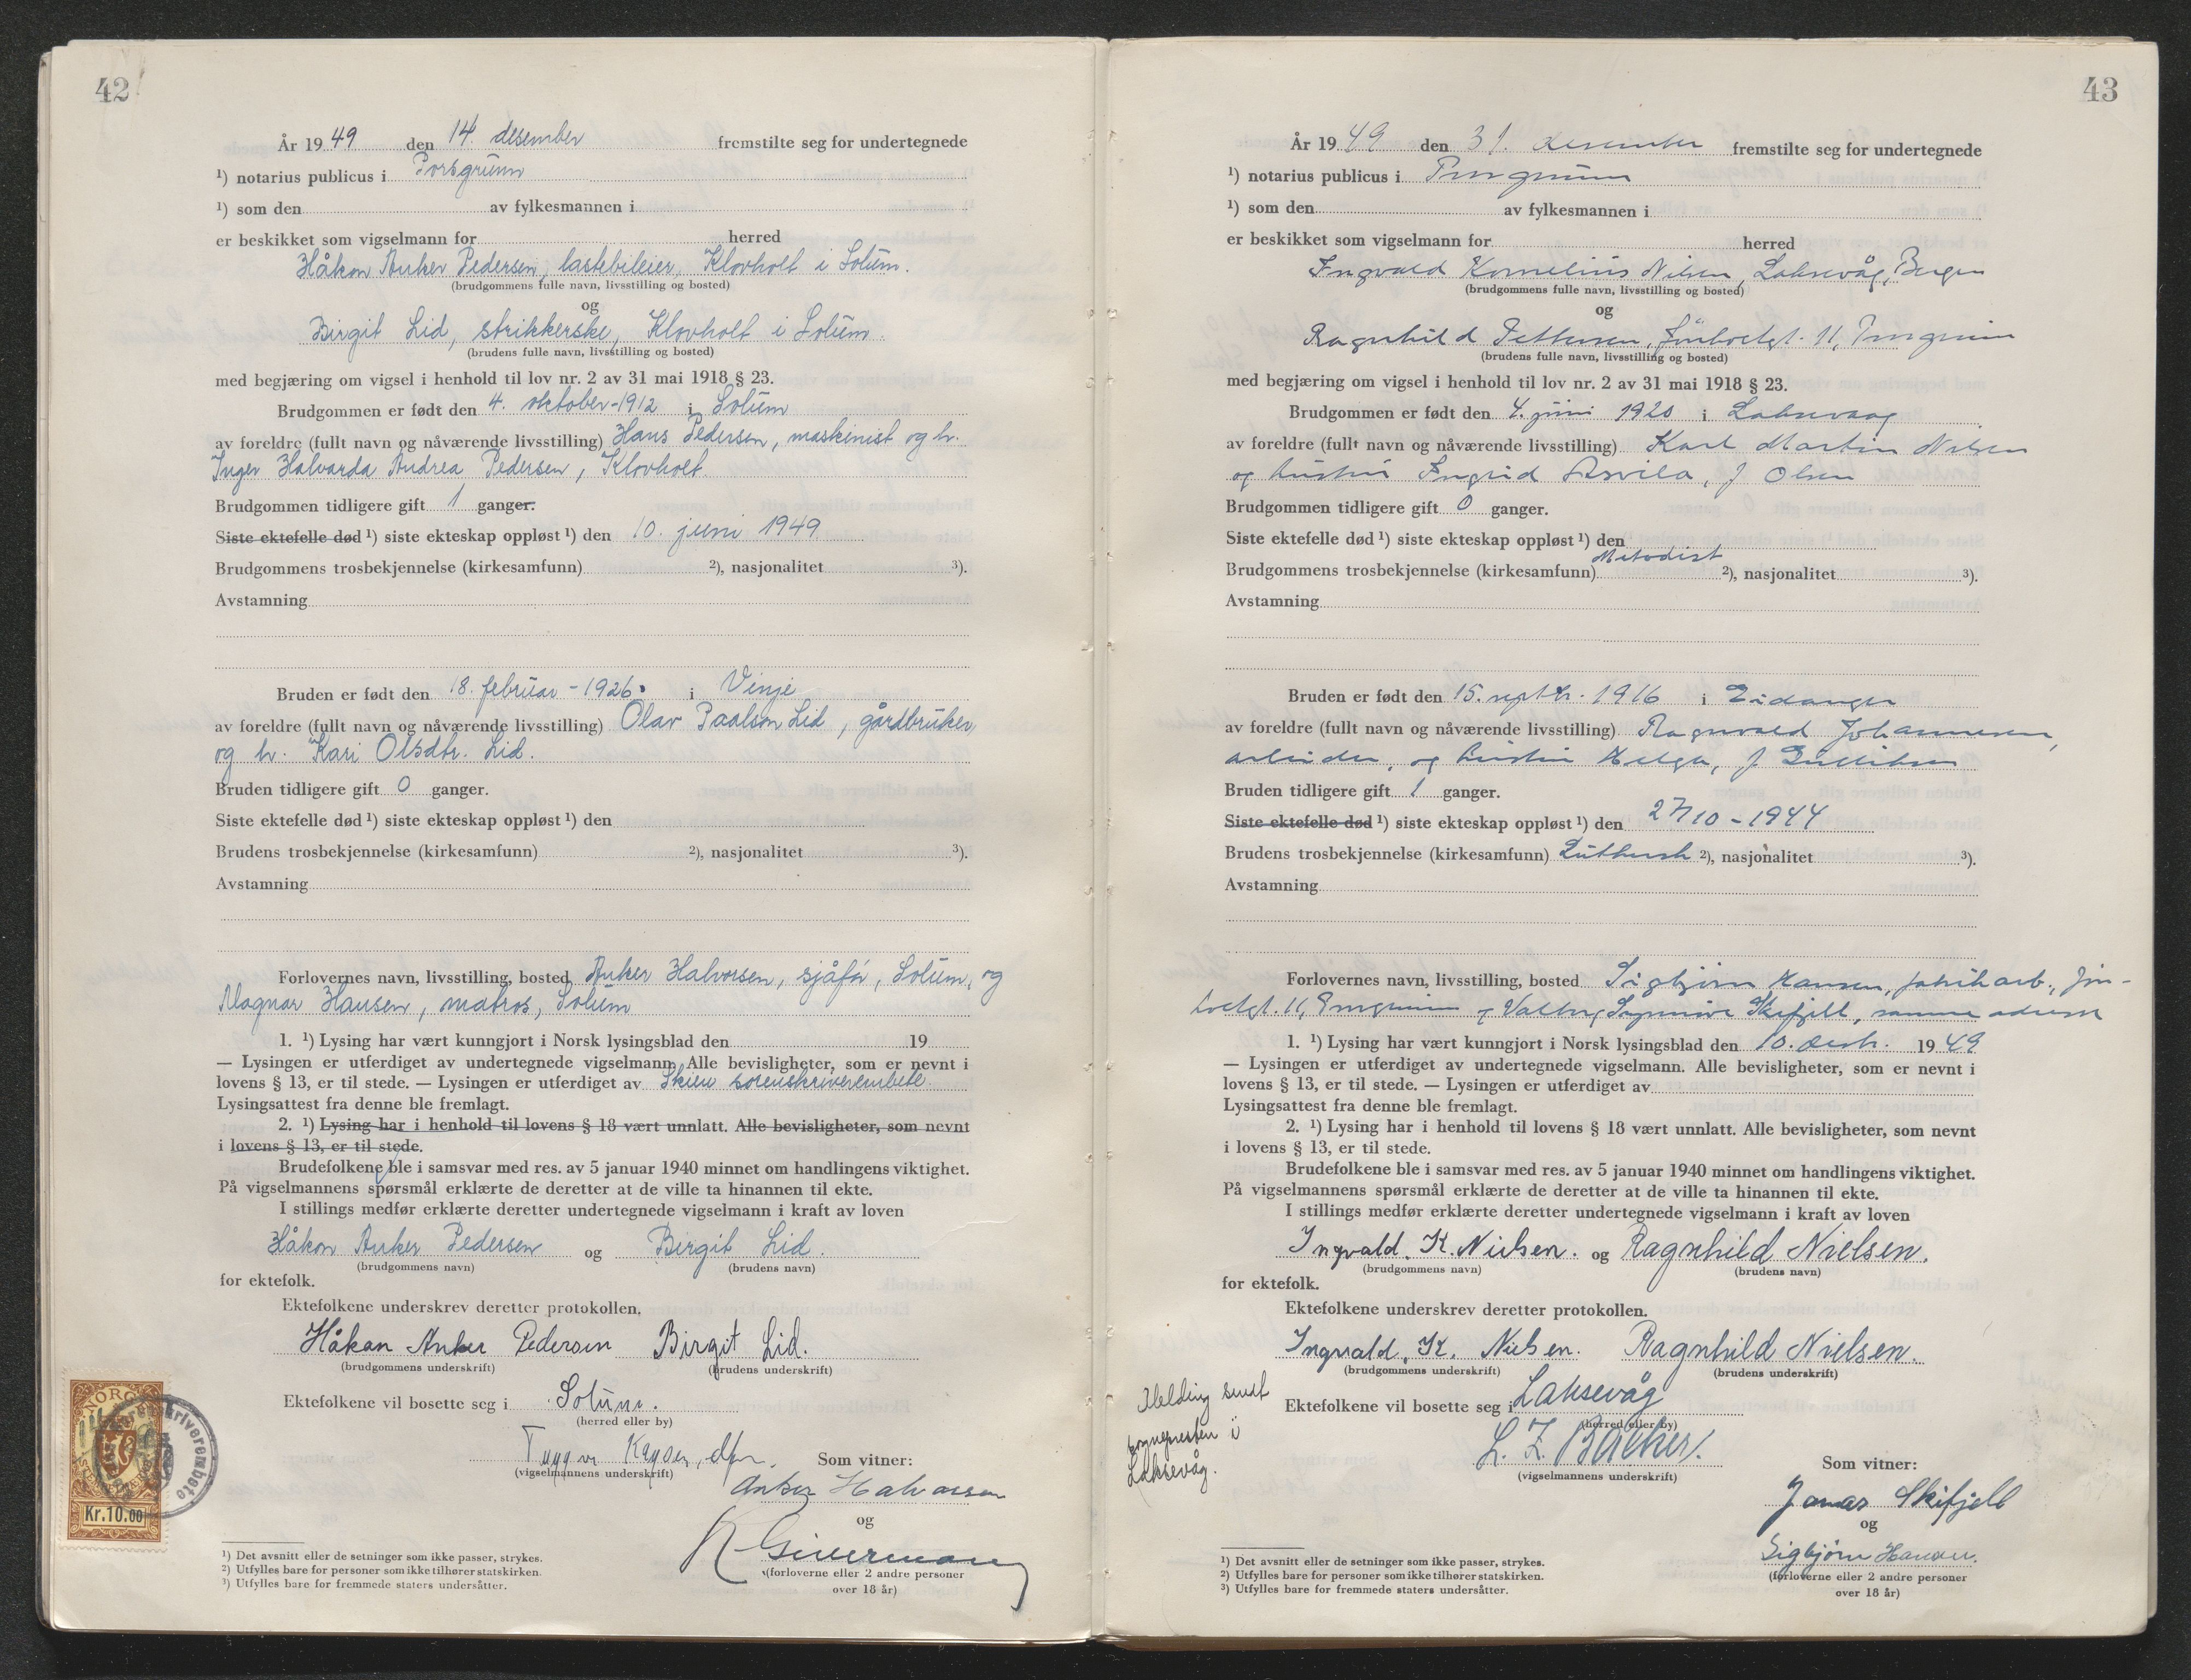 42
År 1949 den 14. desember fremstilte seg for undertegnede
¹) notarius publicus i Porsgrunn
¹) som den av fylkesmannen i
er beskikket som vigselmann for herred
Håkon Anker Pedersen, lastebileier, Klovholt i Solum.
(brudgommens fulle navn, livsstilling og bosted)
og
Birgit Lid, strikkerske, Klovholt i Solum.
(brudens fulle navn, livsstilling og bosted)
med begjæring om vigsel i henhold til lov nr. 2 av 31 mai 1918 § 23.
Brudgommen er født den 4. oktober - 1912 i Solum
av foreldre (fullt navn og nåværende livsstilling) Hans Pedersen, maskinist og h.
Inger Halvarda Andrea Pedersen, Klovholt.
Brudgommen tidligere gift 1 ganger.
Siste ektefelle død ¹) siste ekteskap oppløst ¹) den 10. juni 1949
Brudgommens trosbekjennelse (kirkesamfunn) ²), nasjonalitet ³).
Avstamning
Bruden er født den 18. februar - 1926. i Vinje
av foreldre (fullt navn og nåværende livsstilling) Olav Paalson Lid, gårdbruker,
og h. Kari Olsdtr. Lid.
Bruden tidligere gift 0 ganger.
Siste ektefelle død ¹) siste ekteskap oppløst ¹) den
Brudens trosbekjennelse (kirkesamfunn) ²), nasjonalitet ³).
Avstamning
Forlovernes navn, livsstilling, bosted Anker Halvorsen, sjåfør, Solum, og
Magnar Hansen, matros, Solum
1. ¹) Lysing har vært kunngjort i Norsk lysingsblad den 19
— Lysingen er utferdiget av undertegnede vigselmann. Alle bevisligheter, som er nevnt i
lovens § 13, er til stede. — Lysingen er utferdiget av Skien sorenskriverembete.
Lysingsattest fra denne ble fremlagt.
2. ¹) Lysing har i henhold til lovens § 18 vært unnlatt. Alle bevisligheter, som nevnt
i lovens § 13, er til stede.
Brudefolkene ble i samsvar med res. av 5 januar 1940 minnet om handlingens viktighet.
På vigselmannens spørsmål erklærte de deretter at de ville ta hinannen til ekte.
I stillings medfør erklærte deretter undertegnede vigselmann i kraft av loven
Håkon Anker Pedersen og Birgit Lid.
(brudgommens navn) (brudens navn)
for ektefolk.
Ektefolkene underskrev deretter protokollen.
Håkon Anker Pedersen Birgit Lid.
(brudgommens underskrift) (brudens underskrift)
Ektefolkene vil bosette seg i Solum.
(herred eller by)
Kr.10.00
(vigselmannens underskrift) Som vitner:
Anker Halvorsen
og
(forloverne eller 2 andre personer
over 18 år)
¹) Det avsnitt eller de setninger som ikke passer, strykes.
²) Utfylles bare for personer som ikke tilhører statskirken.
³) Utfylles bare for fremmede staters undersåtter.
43
År 1949 den 31. desember fremstilte seg for undertegnede
¹) notarius publicus i Porsgrunn
¹) som den av fylkesmannen i
er beskikket som vigselmann for herred
Ingvald Kornelius Nilsen, Laksevåg, Bergen
(brudgommens fulle navn, livsstilling og bosted)
og
Ragnhild Pettersen, 11, Porsgrunn
(brudens fulle navn, livsstilling og bosted)
med begjæring om vigsel i henhold til lov nr. 2 av 31 mai 1918 § 23.
Brudgommen er født den 4. juni 1920 i Laksevaag
av foreldre (fullt navn og nåværende livsstilling) Karl Martin Nilsen
og hustru Ingrid f Olsen
Brudgommen tidligere gift 0 ganger.
Siste ektefelle død ¹) siste ekteskap oppløst ¹) den
Brudgommens trosbekjennelse (kirkesamfunn) Metodist ²), nasjonalitet ³).
Avstamning
Bruden er født den 15. septbr. 1916 i Eidanger
av foreldre (fullt navn og nåværende livsstilling) Ragnvald Johannesen,
arbeider, og hustru Helga, f Gulliksen
Bruden tidligere gift 1 ganger.
Siste ektefelle død ¹) siste ekteskap oppløst ¹) den 27/10 - 1944
Brudens trosbekjennelse (kirkesamfunn) Luthersk ²), nasjonalitet ³).
Avstamning
Forlovernes navn, livsstilling, bosted Sigbjørn Hansen, fabrikarb.,
11, Porsgrunn og Valborg Skifjell, samme adresse
1. ¹) Lysing har vært kunngjort i Norsk lysingsblad den 10. desb. 1949
— Lysingen er utferdiget av undertegnede vigselmann. Alle bevisligheter, som er nevnt i
lovens § 13, er til stede. — Lysingen er utferdiget av
Lysingsattest fra denne ble fremlagt.
2. ¹) Lysing har i henhold til lovens § 18 vært unnlatt. Alle bevisligheter, som nevnt
i lovens § 13, er til stede.
Brudefolkene ble i samsvar med res. av 5 januar 1940 minnet om handlingens viktighet.
På vigselmannens spørsmål erklærte de deretter at de ville ta hinannen til ekte.
I stillings medfør erklærte deretter undertegnede vigselmann i kraft av loven
Ingvald. K. Nielsen. og Ragnhild Nielsen.
(brudgommens navn) (brudens navn)
for ektefolk.
Ektefolkene underskrev deretter protokollen.
Ingvald. K. Nielsen. Ragnhild Nielsen.
(brudgommens underskrift) (brudens underskrift)
Melding sendt
sognepresten i
Laksevåg.
Ektefolkene vil bosette seg i Laksevåg
(herred eller by)
L. Z. Backer.
(vigselmannens underskrift) Som vitner:
Jonas Skifjell
og
Sigbjørn Hansen.
(forloverne eller 2 andre personer
over 18 år)
¹) Det avsnitt eller de setninger som ikke passer, strykes.
²) Utfylles bare for personer som ikke tilhører statskirken.
³) Utfylles bare for fremmede staters undersåtter.